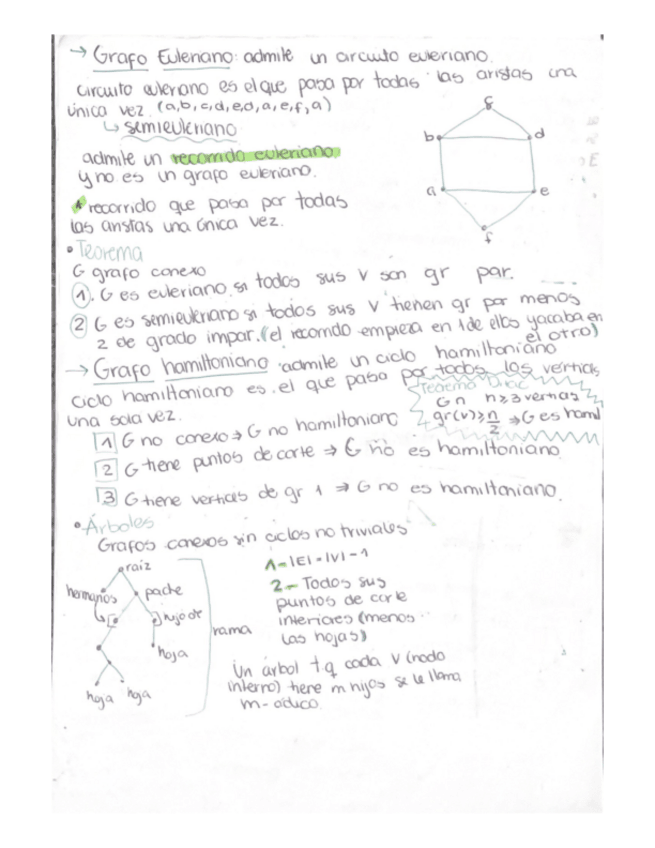 → Grafo Euleriano: admite un circuito euleriano.
circuito euleriano es el que pasa por todas las aristas una
única vez. (a,b,c,d,e,d,a,e,f,a)
↳ semieuleriano
admite un recorrido euleriano
y no es un grafo euleriano.
* recorrido que pasa por todas
las aristas una única vez.
c
b
d
a
e
f
• Teorema
G grafo conexo
①. G es euleriano si todos sus v son gr par.
② G es semieuleriano si todos sus v tienen gr par menos
2 de grado impar. (el recorrido empieza en 1 de ellos y acaba en
el otro)
→ Grafo hamiltoniano admite un ciclo hamiltoniano
ciclo hamiltoniano es el que pasa por todos los vertices
una sola vez.
Teorema Dirac
Gn n≥3 vertices
gr(v)≥n/2 ⇒ G es hamil
1 G no conexo ⇒ G no hamiltoniano
2 G tiene puntos de corte ⇒ G no es hamiltoniano.
3 G tiene vertices de gr 1 ⇒ G no es hamiltoniano.
• Árboles
Grafos conexos sin ciclos no triviales
raiz
hermanos
padre
hijo de
hoja
hoja
hoja
rama
1- |E| = |V| - 1
2- Todos sus
puntos de corte
interiores (menos
las hojas)
Un árbol t.q cada v (nodo
interno) tiene m hijos se le llama